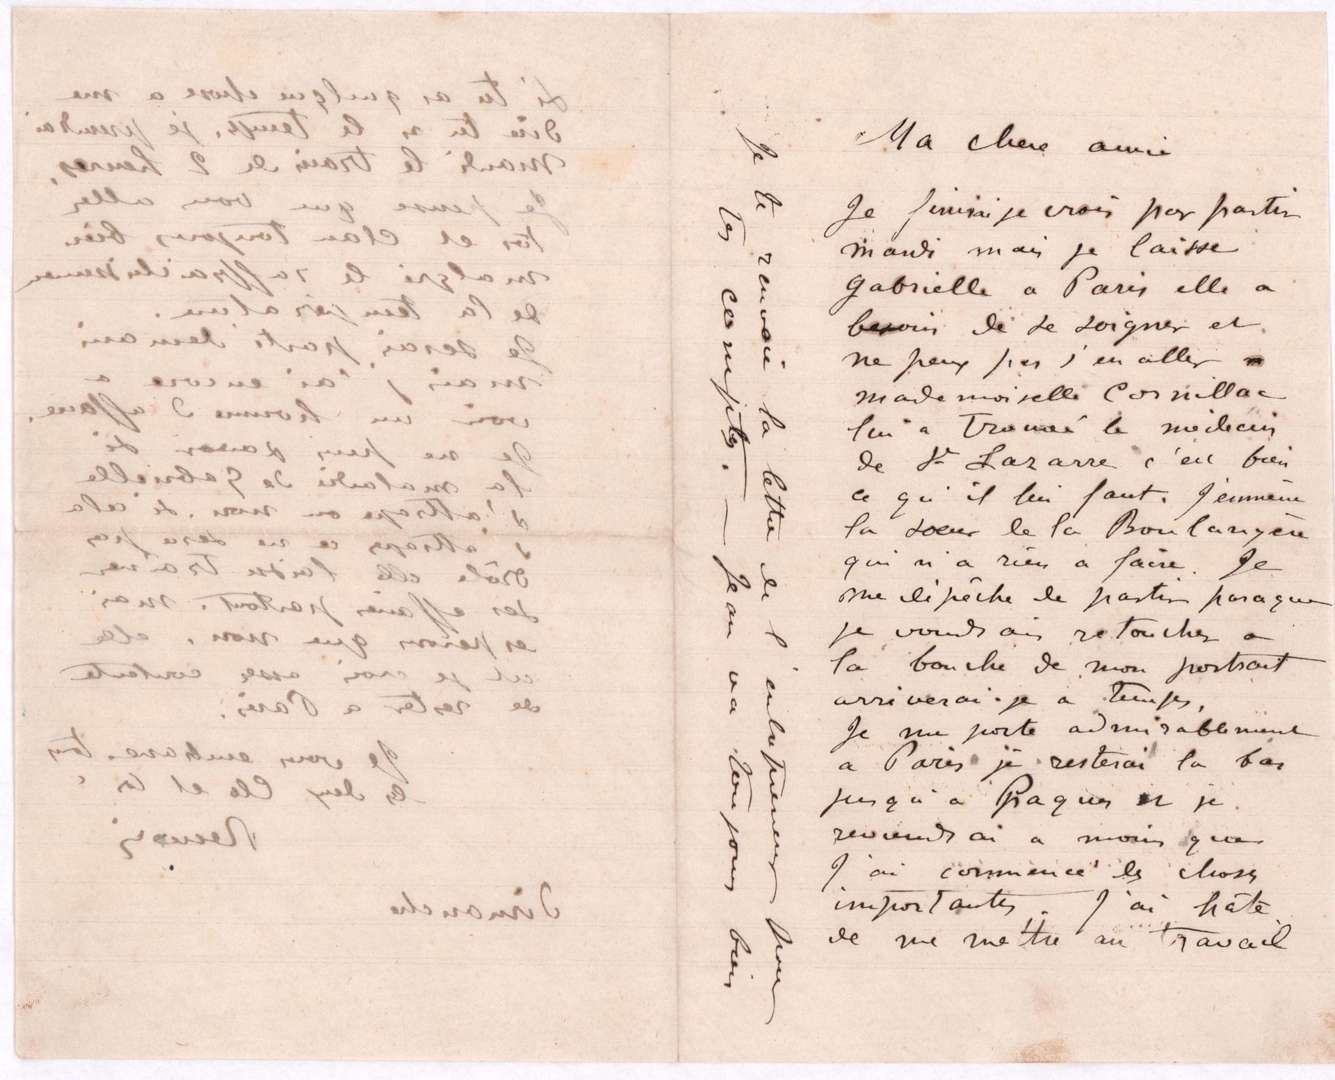 Ma chere amie
Je finirai je crois par partir
mardi mais je laisse
Gabrielle a Paris elle a
besoin de se soigner et
ne peux pas s'en aller
mademoiselle Cornillac
lui a trouvé le médecin
de St Lazarre c'est bien
ce qu'il lui faut. J'emmène
la soeur de la Boulangère
qui n'a rien a faire. Je
me dépêche de partir parceque
je voudrais retoucher a
la bouche de mon portrait
arriverai-je a temps,
Je me porte admirablement
a Paris je resterai la bas
jusqu'a Paques et je
reviendrai a moins que
J'ai commencé des choses
importantes. J'ai hâte
de me mettre au travail
Je te renvoie la lettre de l'entrepreneur pour
les comptes. — Jean va toujours bien
Si tu as quelque chose a me
dire tu as le temps, je prendrai
Mardi le train de 2 heures,
Je pense que vous allez
toi et Clau toujours bien
malgré le raffraichissement
de la température.
Je serai parti demain
mais j'ai encore a
voir un homme d'affaire.
Je ne puis savoir si
la maladie de Gabrielle
s'attrape ou non. si cela
s'attrape ce ne sera pas
drôle elle laisse trainer
ses affaires partout. mais
esperons que non. elle
est je crois assez contente
de rester a Paris.
Je vous embrasse tous
les deux Clo et toi
Renoir
Dimanche